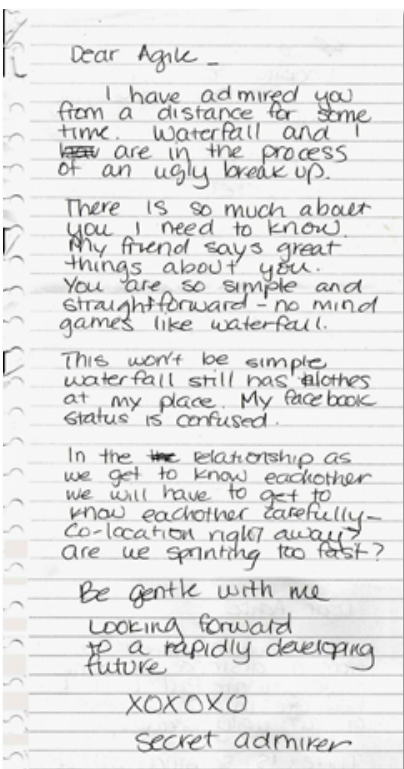 Dear Agile -
I have admired you
from a distance for some
time. Waterfall and I
are in the process
of an ugly break up.
There is so much about
you I need to know.
My friend says great
things about you.
You are so simple and
straightforward - no mind
games like waterfall.
This won't be simple
waterfall still has clothes
at my place. My facebook
status is confused.
In the relationship as
we get to know eachother
we will have to get to
know eachother carefully -
Co-location right away?
are we sprinting too fast?
Be gentle with me
Looking forward
to a rapidly developing
future
XOXOXO
secret admirer